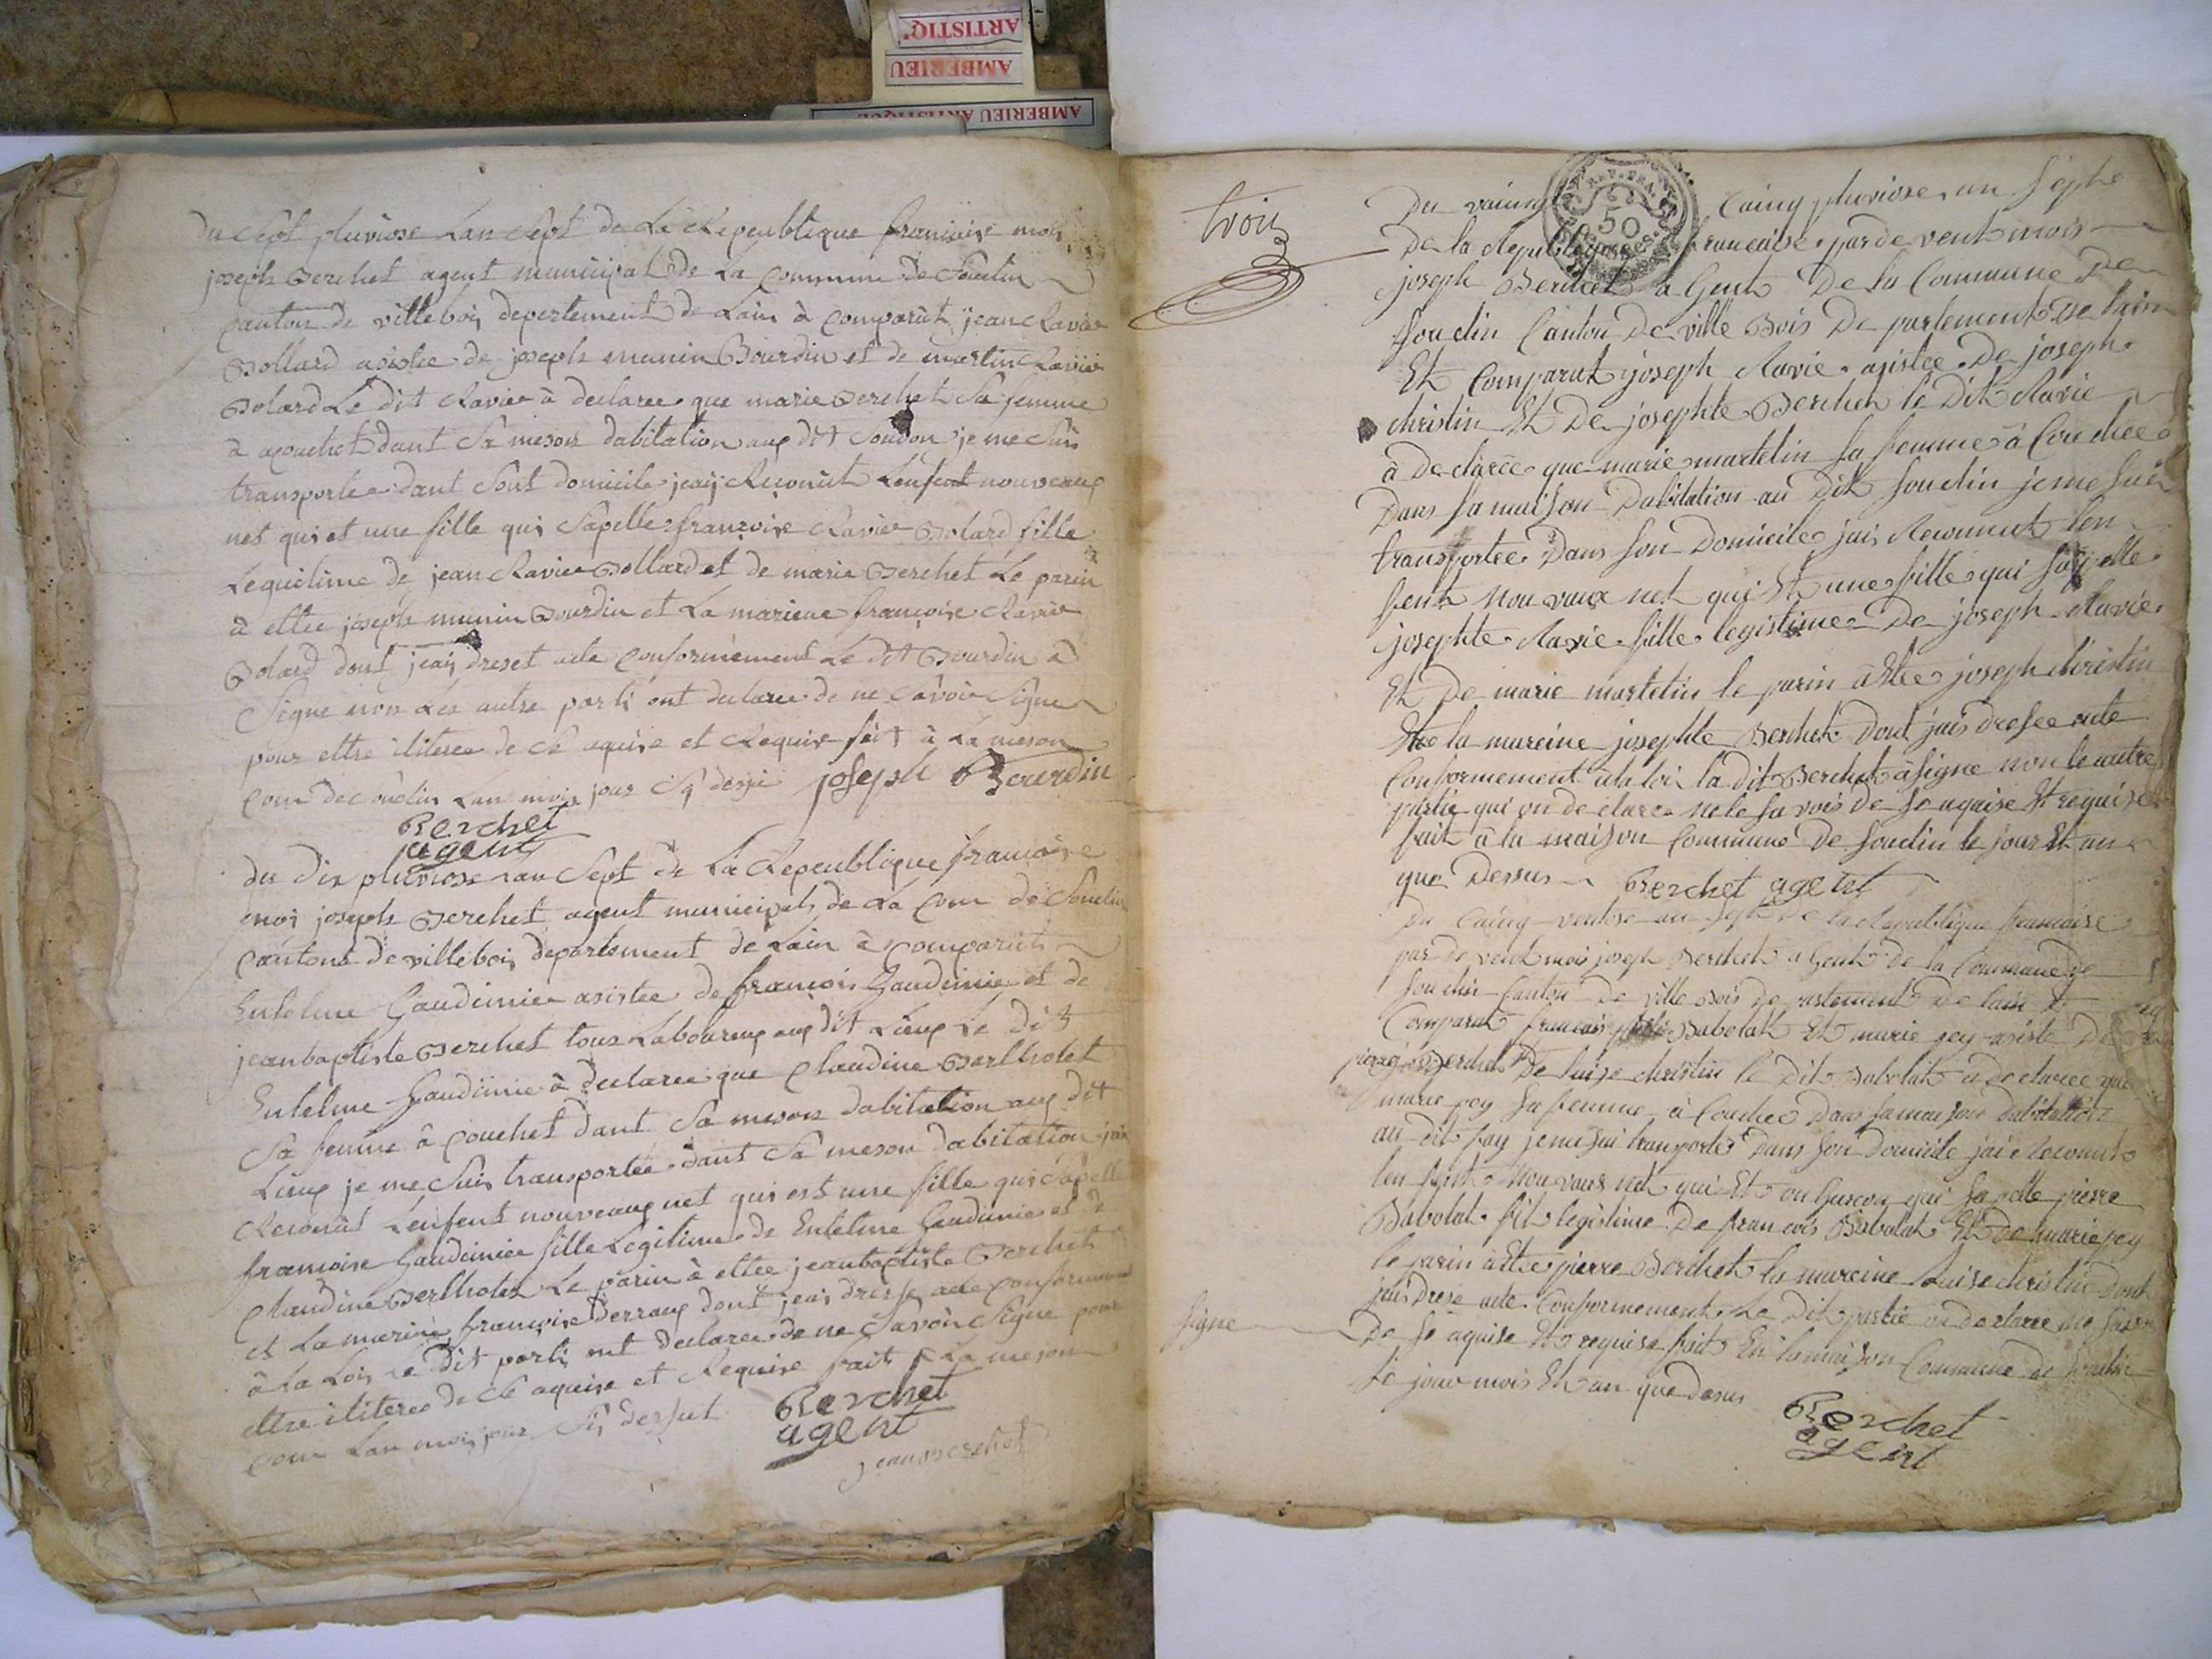 ARTISTIQ'
AMBERIEU
AMBERIEU ARTISTIQUE
du Sept pluviose Lan Sept de La Republique francoise moy
joseph Berchet agent municipal de La Commune de Soudin
Canton de villeboy departement de Lain à Comparut jean Ravier
Bollard asistee de joseph munin Bourdin et de martin Ravier
Bolard Le dit Ravier à declaree que marie Berchet Sa femme
à acouchet dant Sa meson dabitation aup dit Soudon je me Suis
transportee dant Sont domicile jeaij Reconut Lenfent nouveaup
net qui et une fille qui Sapelle francoise Ravier Bolard fille
Lequitime de jean Ravier Bollard et de marie Berchet Le parin
à ettee joseph munin Bourdin et La mariene francoise Ravier
Bolard dont jeaij dreset acte Conformement Le dit Bourdin à
Signe non Les autre parti ont declaree de ne Savoir Signe
pour ettre iliteree de Ce aquise et Requise fait à La meson
Com de Soudin Lan mois jour Cy desji joseph Bourdin
Berchet
agent
du dix pluviose Lan Sept de La Republique francoise
moi joseph Berchet agent municipal de La Com de Soudin
Cantons de villeboi departement de Lain à Comparut
Entelme Gaudimier asistee de francois Gaudimie et de
jean baptiste Berchet tous Laboureup aup dit Lieup Le dit
Entelme Gaudimie à declaree que Claudine Berlhotet
Sa femme à Couchet dant Sa meson dabitation aup dit
Lieup je me Suis transportee dant Sa meson dabitation jais
Reconut Lenfent nouveaup net qui est une fille qui Sapelle
francoise Gaudimier fille Legitime de Entelme Gaudimie et de
Claudine Berlhotet Le parin à ettee jean baptiste Berchet
et La marine francoise Derraup dont jeai dresse acte Conformement
à La Lois Le dit parti ont declaree de ne Savoir Signe pour
ettre iliteree de Ce aquise et Requise fait à La meson
Com Lan mois jour Cy dessut Berchet
agent
jean Berchet
trois
REP. FRA.
50
Du vaiingt Cainq pluviose an Sephe
De la Republique francaise par de vent mois
joseph Berchet a Gent De la Commune De
Soudin Canton De ville Bois De partement De lain
Et Comparut joseph Ravie asistee De joseph
christin Et De josephte Berchet le Dit Ravie
à De claree que marie martelin Sa femme à Couchee
Dans Sa maison Dabitation au Dit Soudin je me Suis
transportee Dans Son Domicile jais Reconnut len
fent Nou vaux net qui Et une fille qui Sapelle
josephte Ravie fille legistime De joseph Ravie
Et De marie martelin le parin à Etee joseph christin
Et la mareine josephte Berchet Dont jais dresee acte
Conformement à la loi la dit Berchet à signe non le autre
partie qui on de claree ne le Sa vois De Se aquise Et requise
fait à la maison Commune De Soudin le jour Et an
que Dessus Berchet agent
Du Cainq ventose an Sephe De la Republique francaise
par de vent mois joseph Berchet a Gent de la Commune De
Soudin Canton De ville Bois De partement De lain Et
Comparut francois Babolat Et marie pey asiste De
pierre Berchet De luise christin le Dit Babolat à declaree que
marie pey Sa femme à Couchee Dans Sa maison Dabitation
au Dit fay je me Sui transporte Dans Son Domicile jai Reconut
len fent Nou vaus net qui Et un Garcon qui Sapelle pierre
Babolat fit legistime De fran cois Babolat Et De marie pey
le parin à Ete pierre Berchet la mareine Luise christin Dont
jais Drese acte Conformement Le Dit partie on declaree ne Savoir
Signe De Se aquise Et requise fait En la maison Commune de Soudin
le jour mois Et an que desus
Berchet
agent